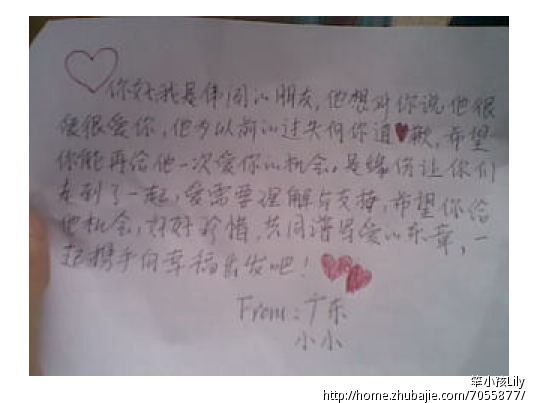 你好,我是伟同的朋友,他想对你说他很
爱很爱你,他为以前的过失向你道歉,希望
你能再给他一次爱你的机会。是缘份让你们
走到了一起,爱需要理解与支持,希望你给
他机会,好好珍惜,共同谱写爱的乐章,一
起携手向幸福出发吧!
From:广东
小小
笨小孩Lily
http://home.zhubajie.com/7055877/